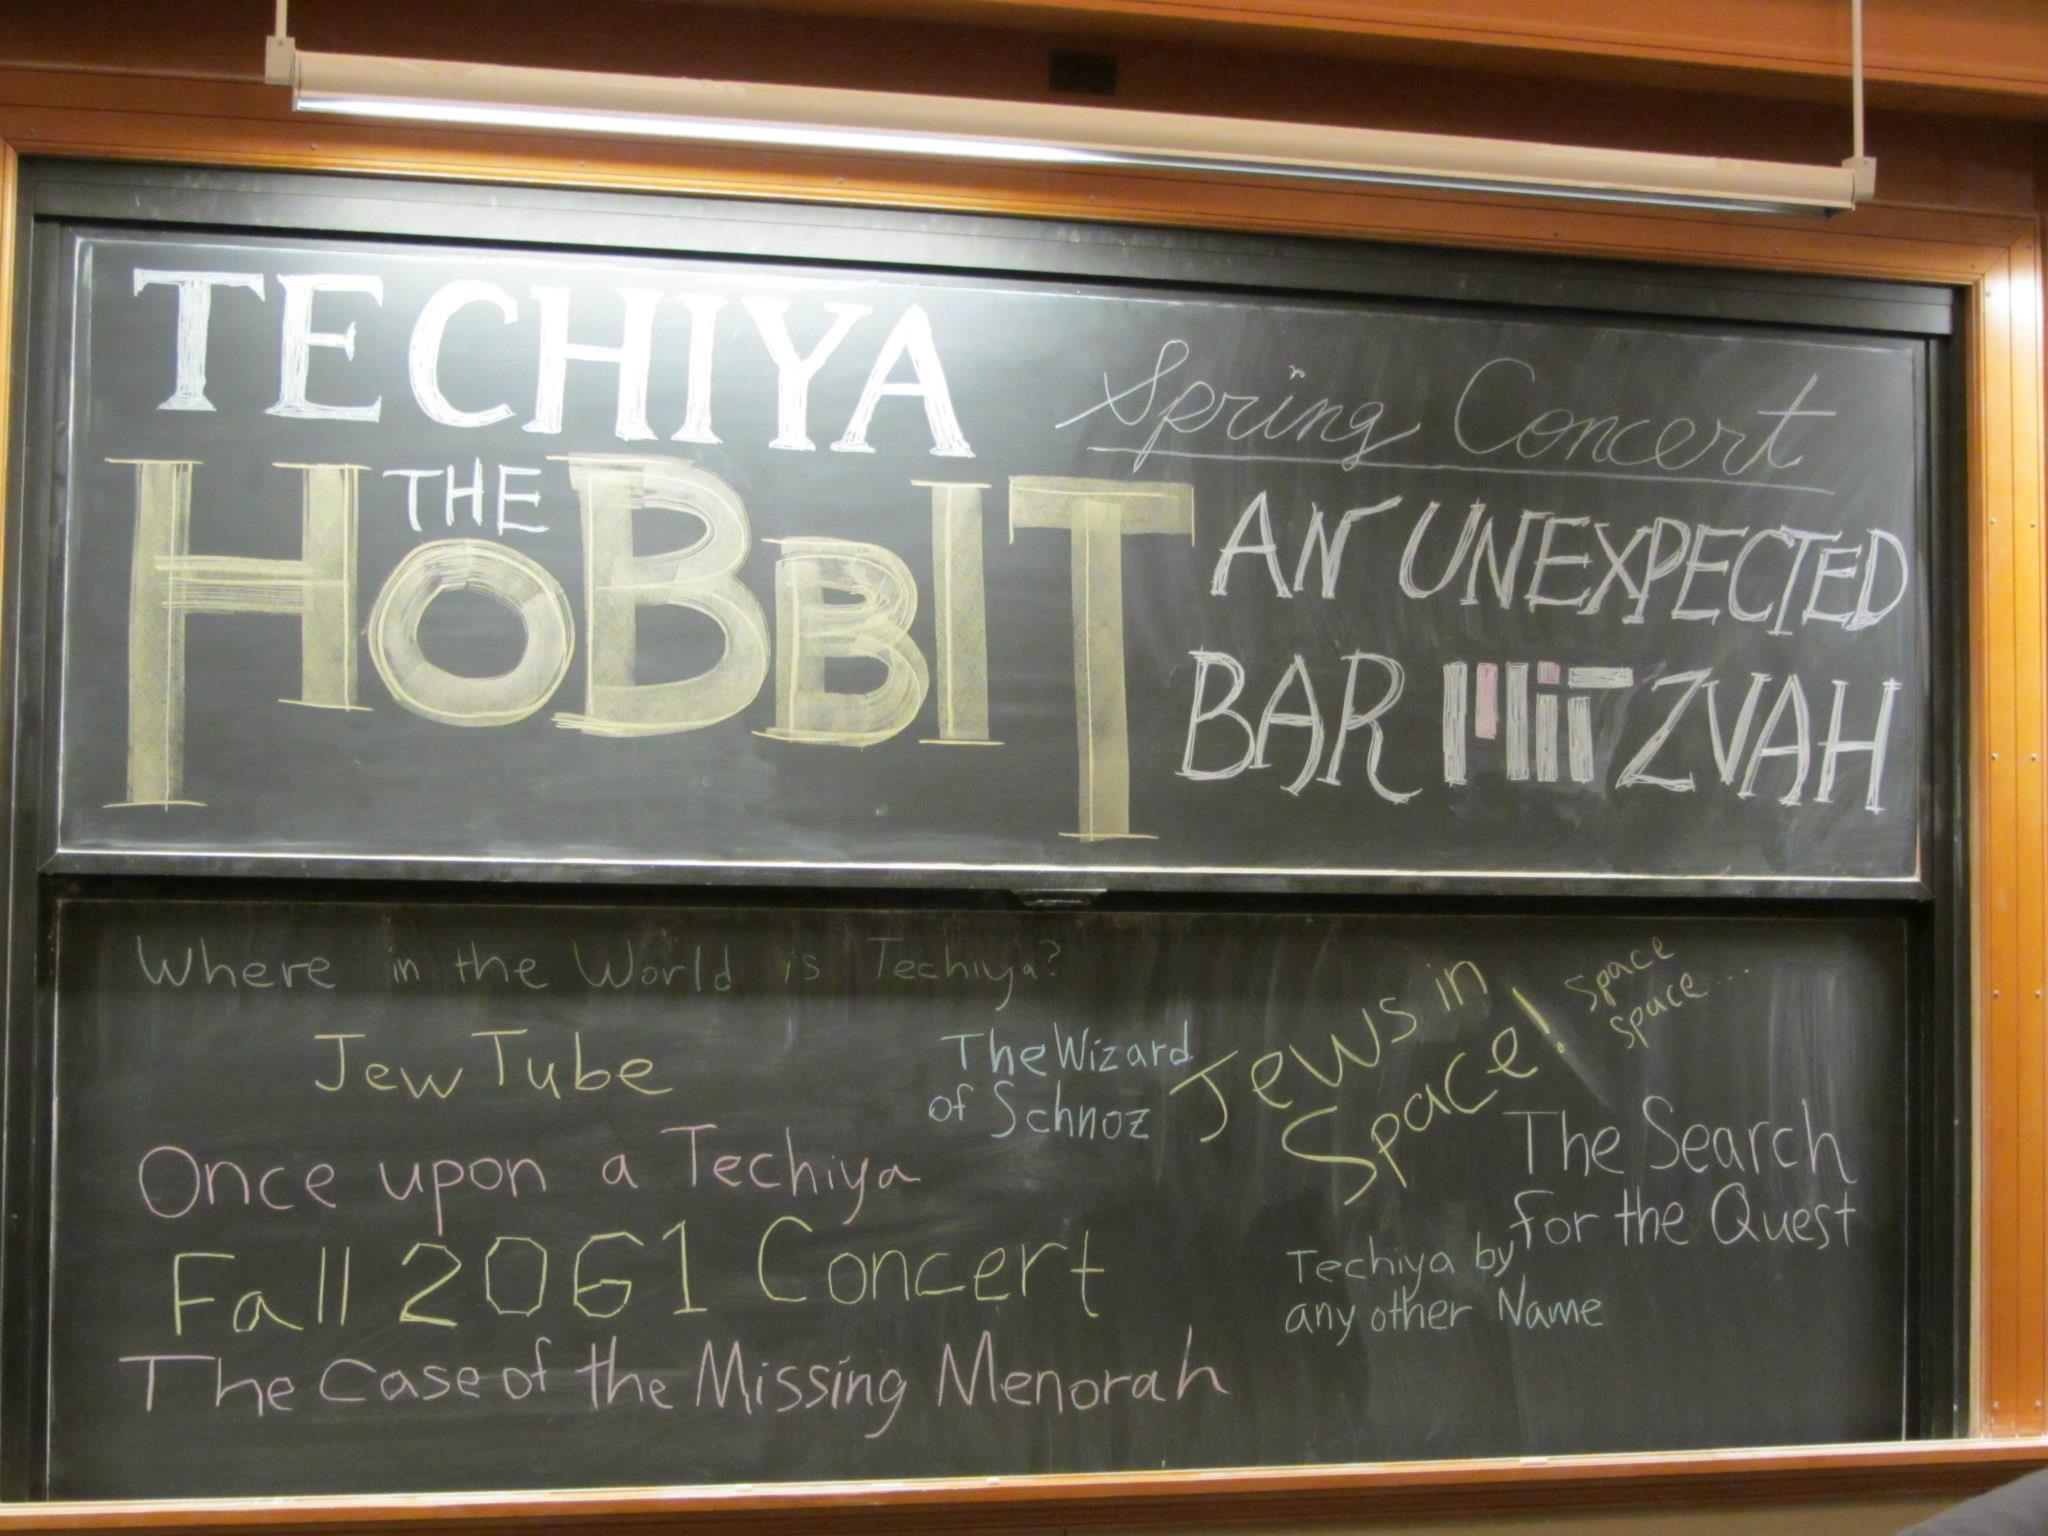 TECHIYA
THE
HOBBIT
Spring Concert
AN UNEXPECTED
BAR MITZVAH
Where in the World is Techiya?
JewTube
The Wizard
of Schnoz
Jews in
Space!
space
space...
Once upon a Techiya
The Search
for the Quest
Fall 2061 Concert
Techiya by
any other Name
The Case of the Missing Menorah